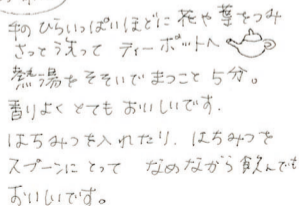 手のひらいっぱいほどに花や茎をつみ
さっと洗って ティーポットへ
熱湯をそそいでまつこと5分。
香りよく とても おいしいです.
はちみつを入れたり、はちみつを
スプーンにとって なめながら飲んでも
おいしいです。